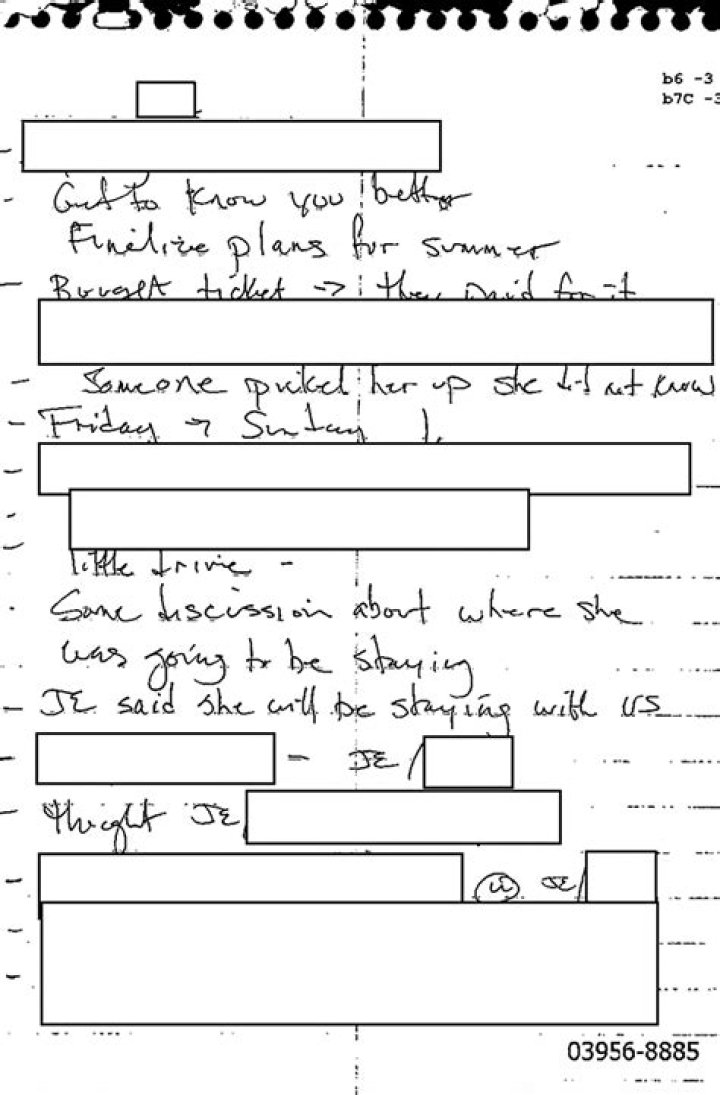 b6 -3
b7C -3
Get to know you better
Finalize plans for summer
Bought ticket -> they paid for it
Someone picked her up she did not know
Friday -> Sunday
little
Some discussion about where she
was going to be staying
JE said she will be staying with us
- JE /
thought JE
w JE/
03956-8885